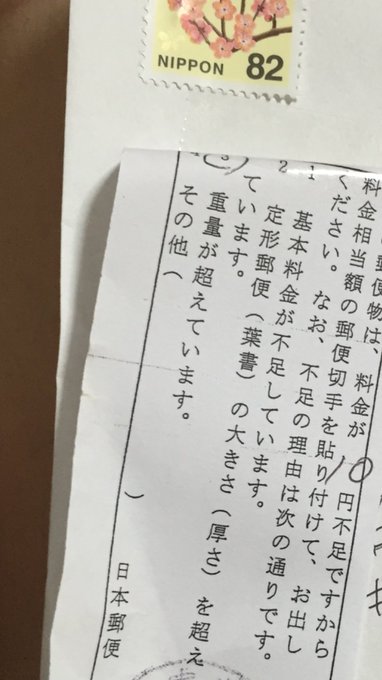 NIPPON 82
郵便物は、料金が10円不足ですから
料金相当額の郵便切手を貼り付けて、お出し
ください。なお、不足の理由は次の通りです。
1 基本料金が不足しています。
2 定形郵便（葉書）の大きさ（厚さ）を超え
ています。
3 重量が超えています。
その他（ ）
日本郵便